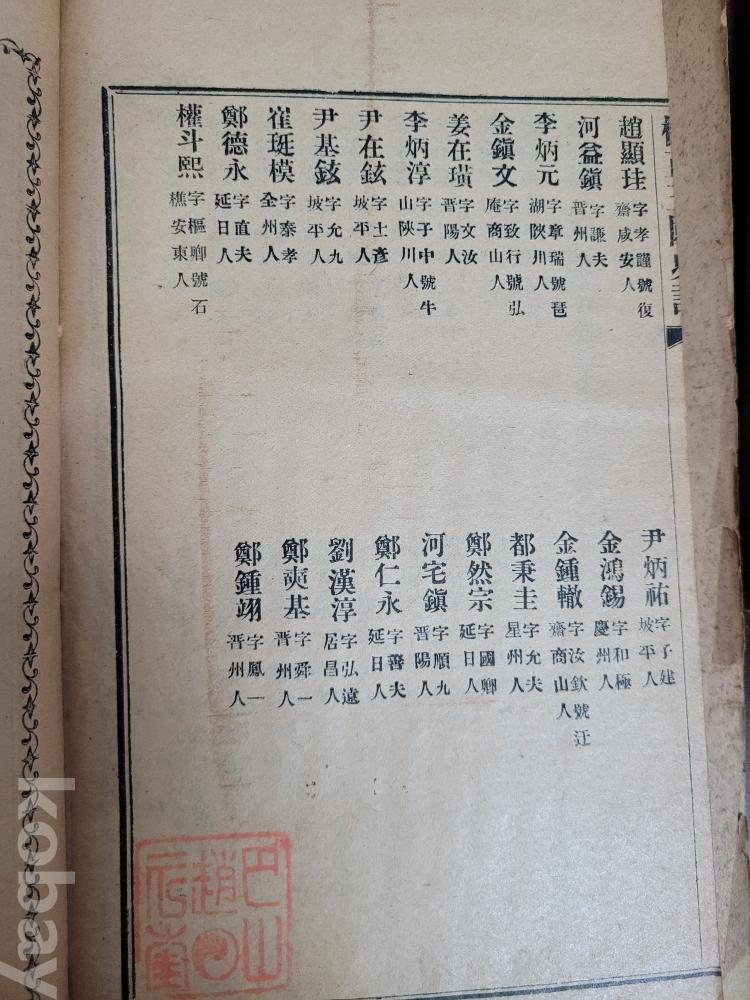 趙顯珪 字孝謹號復齋咸安人
河益鎭 字謙夫晋州人
李炳元 字章瑞號琶湖陜川人
金鎭文 字致行號弘庵商山人
姜在璜 字文汝晋陽人
李炳淳 字子中號牛山陜川人
尹在鉉 字士彥坡平人
尹基鉉 字允九坡平人
崔珽模 字泰孝全州人
鄭德永 字直夫延日人
權斗熙 字樞卿號石樵安東人
尹炳祐 字子建坡平人
金鴻錫 字和極慶州人
金鍾轍 字汝欽號汪齋商山人
都秉圭 字允夫星州人
鄭然宗 字國卿延日人
河宅鎭 字順九晋陽人
鄭仁永 字善夫延日人
劉漢淳 字弘遠居昌人
鄭奭基 字舜一晋州人
鄭鍾翊 字鳳一晋州人
巴山
趙
kobay